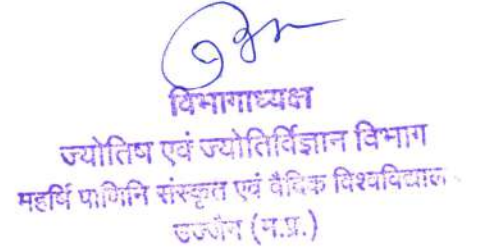 विभागाध्यक्ष
ज्योतिष एवं ज्योतिर्विज्ञान विभाग
महर्षि पाणिनि संस्कृत एवं वैदिक विश्वविद्याल
उज्जैन (म.प्र.)